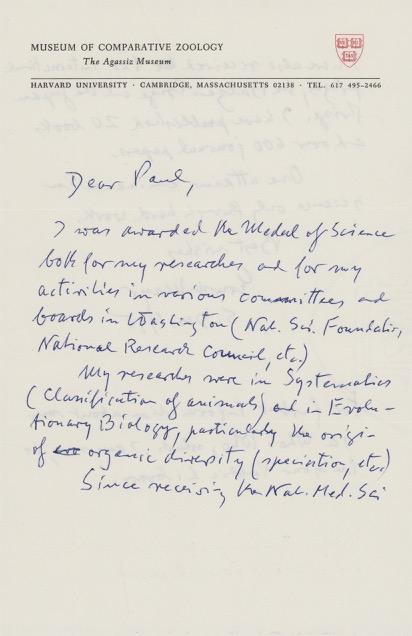 MUSEUM OF COMPARATIVE ZOOLOGY
The Agassiz Museum
HARVARD UNIVERSITY · CAMBRIDGE, MASSACHUSETTS 02138 · TEL. 617 495-2466
Dear Paul,
I was awarded the Medal of Science
both for my researches and for my
activities in various committees and
boards in Washington (Nat. Sci. Foundation,
National Research Council, etc.)
My researches were in Systematics
(Classification of animals) and in Evolu-
tionary Biology, particularly the origin
of organic diversity (speciation, etc.)
Since receiving the Nat. Med. Sci